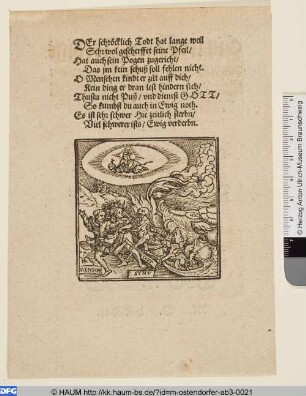 DEr schröcklich Todt hat lange weil
Sehr wol gescherfft seine Pfeil/
Hat auch sein Bogen zugericht/
Das jm kein schuß soll fehlen nicht.
O Menschen kindt er zilt auff dich/
Kein ding er dran lest hindern sich/
Thustu nicht Puß/ vnd dienest GOTT/
So kumbst du auch in Ewig noth.
Es ist sehr schwer Hie zeitlich sterbn/
Viel schwerer ists/ Ewig verderbn.
MENSCH
© Herzog Anton Ulrich-Museum Braunschweig
DFG
© HAUM http://kk.haum-bs.de/?id=m-ostendorfer-ab3-0021